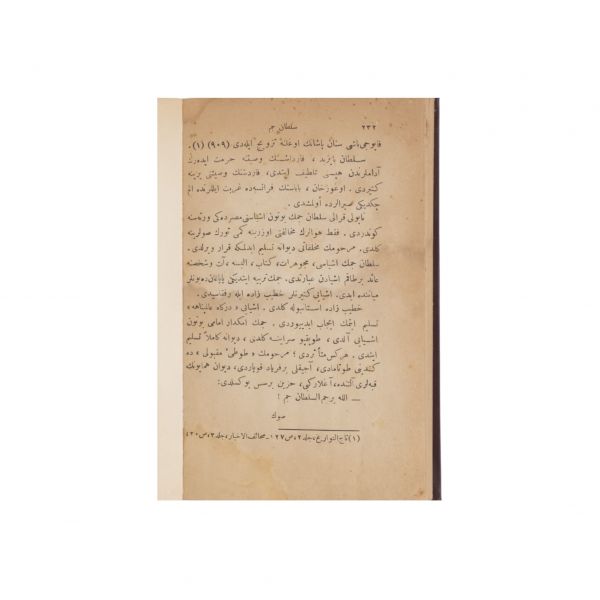 ٢٣٢ سلطان جم
قاپوجی باشی سنان پاشانك اوغلنه تزویج ایلدی (٩٠٩) (١) .
سلطان بایزید ، قارداشنك وصیته حرمت ایدەرك
آداملریندن هپسنی تلطیف ایتدی، قاردشنك وصیتنی یرینه
كتیردی . اوغوزخان ، باباسنك فرانسەده غربت ایللرنده الم
چكدیكی صیرالرده اولمشدی .
ناپولی قرالی سلطان جمك بوتون اشیاسنی مصردەكی ورثەسنه
كوندردی . فقط هوالرك مخالفتی اوزرینه كمی تورك صولرینه
كلدی . مرحومك مخلفاتی دیوانه تسلیم ایدلمكه قرار ویرلدی .
سلطان جمك اشیاسی ، مجوهرات ، كتاب ، البسه ، آت وشخصنه
عائد برطاقم اشیادن عبارتدی . جمك تربیه ایتدیكی پاپاغان ده بونلر
میاننده ایدی . اشیایی كتیرنلر خطیب زاده ایله رفقاسیدی .
خطیب زاده استانبوله كلدی . اشیایی ، دركاه عالیپناهه ،
تسلیم ایتمك ایجاب ایدییوردی . جمك امكدار امامی بوتون
اشیایی آلدی ، طوپقپو سراینه كلدی ، دیوانه كاملاً تسلیم
ایتدی . هركس متأثردی ؛ مرحومك « طوطیٔ مقبولی » ده
كندینی طوتامادی ، آجیقلی برفریاد قوپاردی ، دیوان همایونك
قبەلری آلتنده ، آغلاركبی ، حزین برسس یوكسلدی :
— الله یرحم السلطان جم !
صوك
(١) تاج التواریخ ، جلد ٢ ، ص ١٢٧ ـ صحائف الاخبار ، جلد ٣ ، ص ٤٣٠